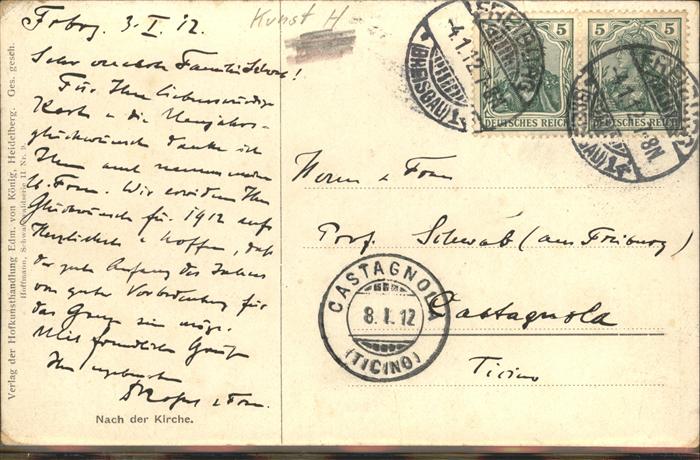 Verlag der Hofkunsthandlung Edm. von König, Heidelberg. Ges. gesch.
Hoffmann, Schwarzwaldserie II Nr. 9.
Kunst H
Frbg. 3.I.12.
Sehr verehrte Familie Schwab!
Für Ihre liebenswürdige
Karte u die Neujahrs-
glückwünsche danke ich
Ihnen auch namens meiner
l. Frau. Wir erwidern Ihre
Glückwünsche für 1912 aufs
Herzlichste u hoffen, daß
der gute Anfang des Jahres
von guter Vorbedeutung für
das Ganze sein möge.
Mit freundlichen Grüßen
Ihr ergebenster
u Frau.
Nach der Kirche.
FREIBURG
4.1.12
(BREISGAU)
5
DEUTSCHES REICH
5
DEUTSCHES REICH
Herrn u Frau
Prof. Schwab (aus Freiburg)
Castagnola
Ticino
CASTAGNOLA
8.I.12
(TICINO)